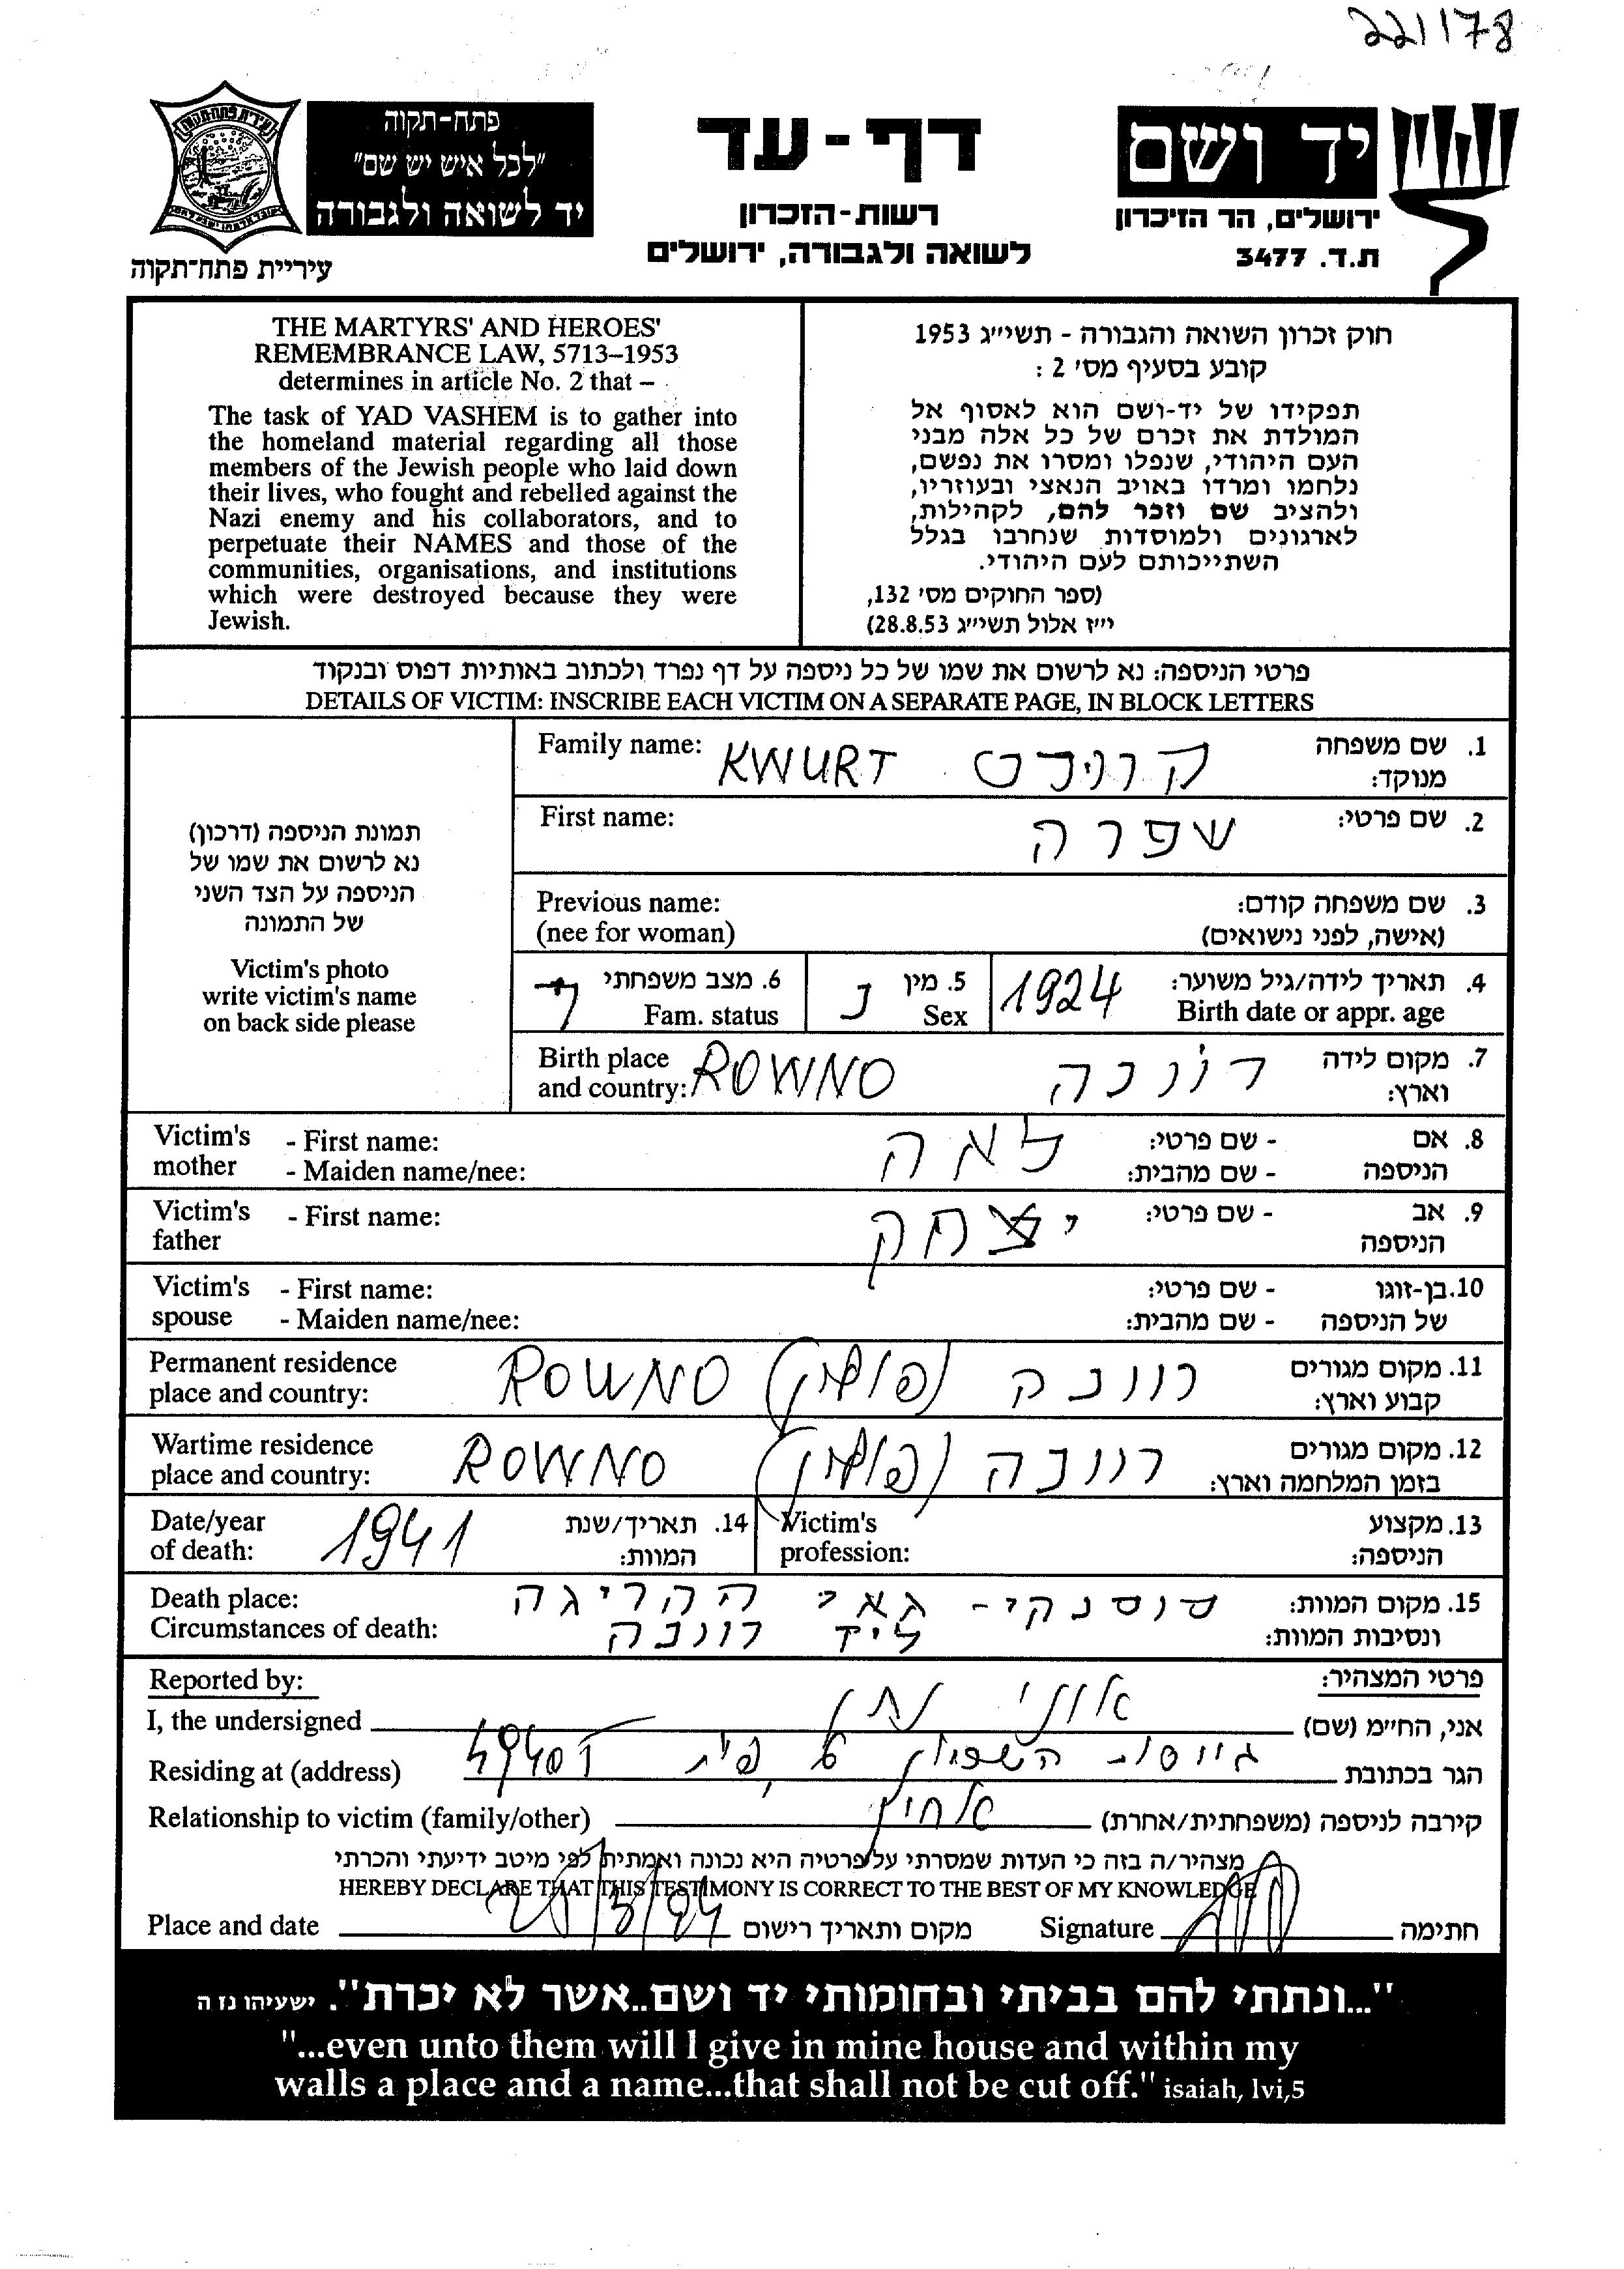 221178
פתח-תקוה
"לכל איש יש שם"
יד לשואה ולגבורה
עיריית פתח-תקוה
דף-עד
רשות-הזכרון
לשואה ולגבורה, ירושלים
יד ושם
ירושלים, הר הזיכרון
ת.ד. 3477
THE MARTYRS' AND HEROES'
REMEMBRANCE LAW, 5713–1953
determines in article No. 2 that –
The task of YAD VASHEM is to gather into
the homeland material regarding all those
members of the Jewish people who laid down
their lives, who fought and rebelled against the
Nazi enemy and his collaborators, and to
perpetuate their NAMES and those of the
communities, organisations, and institutions
which were destroyed because they were
Jewish.
חוק זכרון השואה והגבורה - תשי״ג 1953
קובע בסעיף מס׳ 2 :
תפקידו של יד-ושם הוא לאסוף אל
המולדת את זכרם של כל אלה מבני
העם היהודי, שנפלו ומסרו את נפשם,
נלחמו ומרדו באויב הנאצי ובעוזריו,
ולהציב שם וזכר להם, לקהילות,
לארגונים ולמוסדות שנחרבו בגלל
השתייכותם לעם היהודי.
(ספר החוקים מס׳ 132,
י״ז אלול תשי״ג 28.8.53)
פרטי הניספה: נא לרשום את שמו של כל ניספה על דף נפרד ולכתוב באותיות דפוס ובנקוד
DETAILS OF VICTIM: INSCRIBE EACH VICTIM ON A SEPARATE PAGE, IN BLOCK LETTERS
תמונת הניספה (דרכון)
נא לרשום את שמו של
הניספה על הצד השני
של התמונה
Victim's photo
write victim's name
on back side please
Family name: KWURT קוורט 1. שם משפחה
מנוקד:
First name: שפרה 2. שם פרטי:
Previous name: 3. שם משפחה קודם:
(nee for woman) (אישה, לפני נישואים)
4. תאריך לידה/גיל משוער: 1924 5. מין נ 6. מצב משפחתי
Birth date or appr. age Sex Fam. status
Birth place ROWNO רוונה 7. מקום לידה
and country: וארץ:
Victim's - First name: לאה - שם פרטי: 8. אם
mother - Maiden name/nee: - שם מהבית: הניספה
Victim's - First name: יצחק - שם פרטי: 9. אב
father הניספה
Victim's - First name: - שם פרטי: 10. בן-זוגו
spouse - Maiden name/nee: - שם מהבית: של הניספה
Permanent residence ROWNO (פולין) רוונה 11. מקום מגורים
place and country: קבוע וארץ:
Wartime residence ROWNO (פולין) רוונה 12. מקום מגורים
place and country: בזמן המלחמה וארץ:
Date/year 1941 14. תאריך/שנת Victim's 13. מקצוע
of death: המוות: profession: הניספה:
Death place: סוסנקי - גאי ההריגה 15. מקום המוות:
Circumstances of death: ליד רוונה ונסיבות המוות:
Reported by: פרטי המצהיר:
I, the undersigned נתן אני, החי״מ (שם)
Residing at (address) 49401 הגר בכתובת
Relationship to victim (family/other) קירבה לניספה (משפחתית/אחרת)
מצהיר/ה בזה כי העדות שמסרתי על פרטיה היא נכונה ואמתית לפי מיטב ידיעתי והכרתי
HEREBY DECLARE THAT THIS TESTIMONY IS CORRECT TO THE BEST OF MY KNOWLEDGE
Place and date מקום ותאריך רישום Signature חתימה
"...ונתתי להם בביתי ובחומותי יד ושם..אשר לא יכרת". ישעיהו נז ה
"...even unto them will I give in mine house and within my
walls a place and a name...that shall not be cut off." isaiah, lvi,5